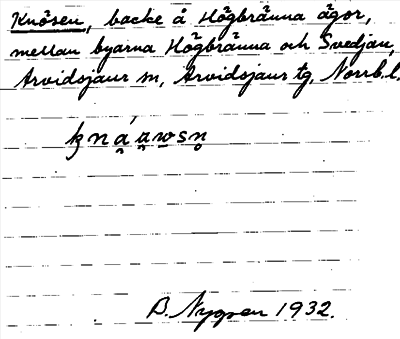 Knösen, backe å Högbränna ägor,
mellan byarna Högbränna och Svedjan,
Arvidsjaur sn, Arvidsjaur tg, Norrb. l.
B. Nygren 1932.